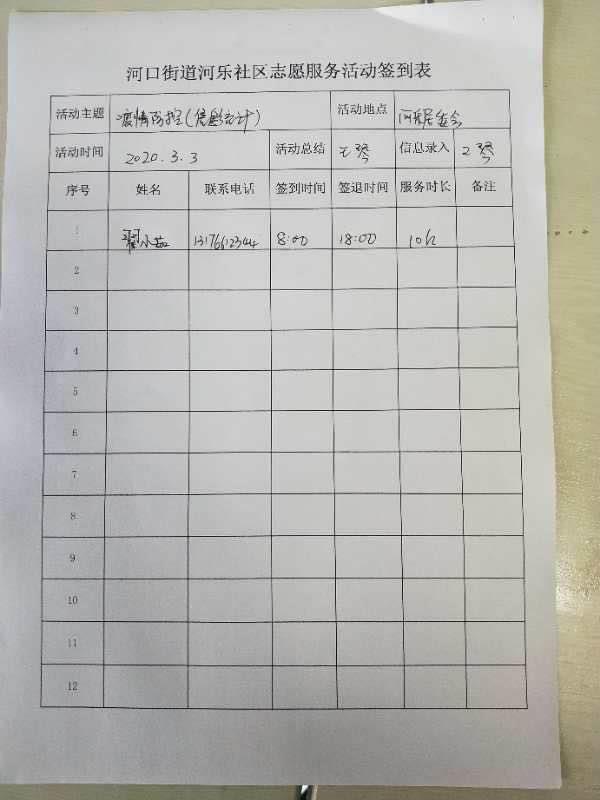 河口街道河乐社区志愿服务活动签到表
活动主题 疫情防控(信息统计) 活动地点 河乐居委会
活动时间 2020.3.3 活动总结 王琴 信息录入 王琴
序号 姓名 联系电话 签到时间 签退时间 服务时长 备注
1 小茹 13176612344 8:00 18:00 10h
2
3
4
5
6
7
8
9
10
11
12